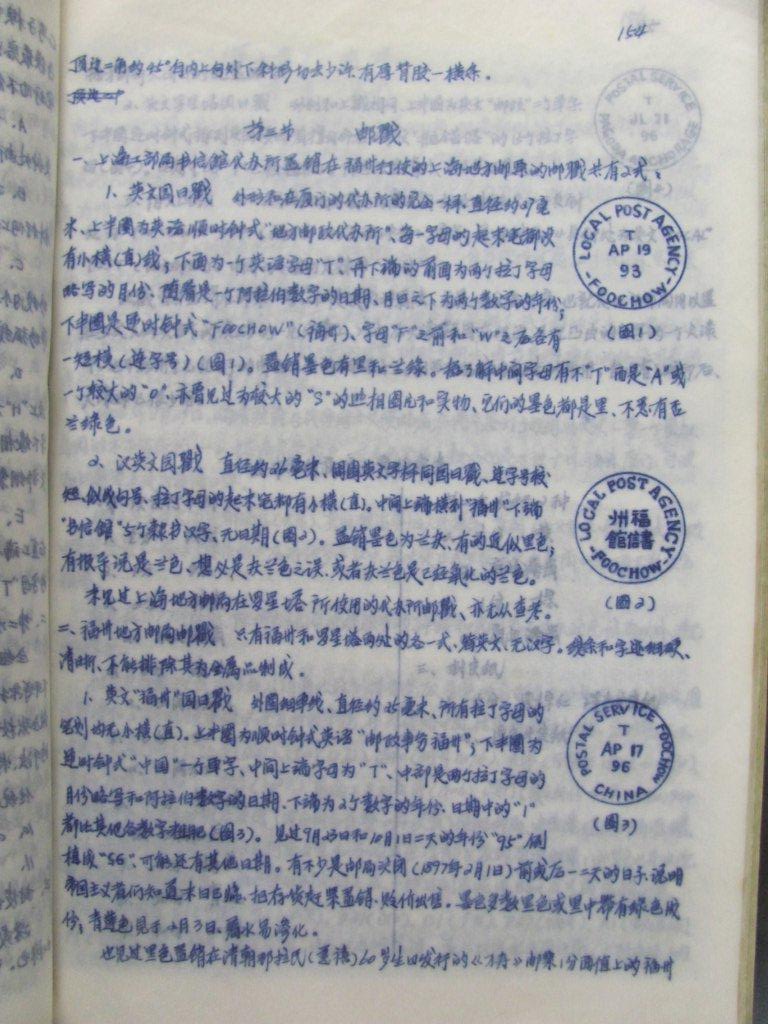 154
顶边二角的45°向内上向外下斜形切去少许,有厚背胶一横条。
第二节 邮戳
一、上海工部局书信馆代办所盖销在福州行使的上海地方邮票的邮戳共有2式:
1. 英文园日戳 外形和在厦门的代办所的完全一样、直径约27毫
米、上半圈为英语顺时钟式"地方邮政代办所"、每一字母的起末笔都没
有小横(直)线;下面为一个英语字母"T"、再下端的前面为两个拉丁字母
略写的月份、随着是一个阿拉伯数字的日期、月日之下为两个数字的年份;
下半圈是逆时钟式"FOOCHOW"(福州)、字母"F"之前和"W"之后各有
一短横(连字号)(图1)。盖销墨色有黑和兰绿。据了解中间字母有不"T"而是"A"或
一个较大的"O"、亦曾见过为较大的"S"的 相图片和实物、它们的墨色都是黑、不悉有否
兰绿色。
2. 汉英文园戳 直径约26毫米、周围英文字样同园日戳、连字号较
短、似成句号、拉丁字母的起末笔都有小横(直)。中间上端横列"福州"下端
"书信馆"5个隶书汉字、无日期(图2)。盖销墨色为兰灰、有的近似黑色;
有报导说是兰色、想必是灰兰色之误、或者灰兰色是已经氧化的兰色。
未见过上海地方邮局在罗星塔所使用的代办所邮戳、亦无从查考。
二、福州地方邮局邮戳 只有福州和罗星塔两处的各一式、 英文、无汉字。线条和字迹细硬、
清晰、不能排除其为金属品制成。
1. 英文"福州"园日戳 外圈细单线、直径约25毫米、所有拉丁字母的
笔划均无小横(直)。上半圈为顺时钟式英语"邮政事务福州";下半圈为
逆时钟式"中国"一个单字、中间上端字母为"T"、中部是两个拉丁字母的
月份略写和阿拉伯数字的日期、下端为2个数字的年份、日期中的"1"
都比其他各数字粗肥(图3)。见过9月23日和10月1日二天的年份"95"倒
植成"56"、可能还有其他日期。有不少是邮局关闭(1897年2月1日)前或后一二天的日子、说明
帝国主义者们知道末日已临、把存货赶紧盖销、贱价出售。墨色多数黑色或黑中带有绿色成
份;青莲色见于2月3日、 水易渗化。
也见过黑色盖销在清朝那拉氏(慈禧)60岁生日发行的《万寿》邮票1分面值上的福州
LOCAL POST AGENCY
T
AP 19
93
-FOOCHOW-
(图1)
LOCAL POST AGENCY
州福
館信書
-FOOCHOW-
(图2)
POSTAL SERVICE FOOCHOW
T
AP 17
96
CHINA
(图3)